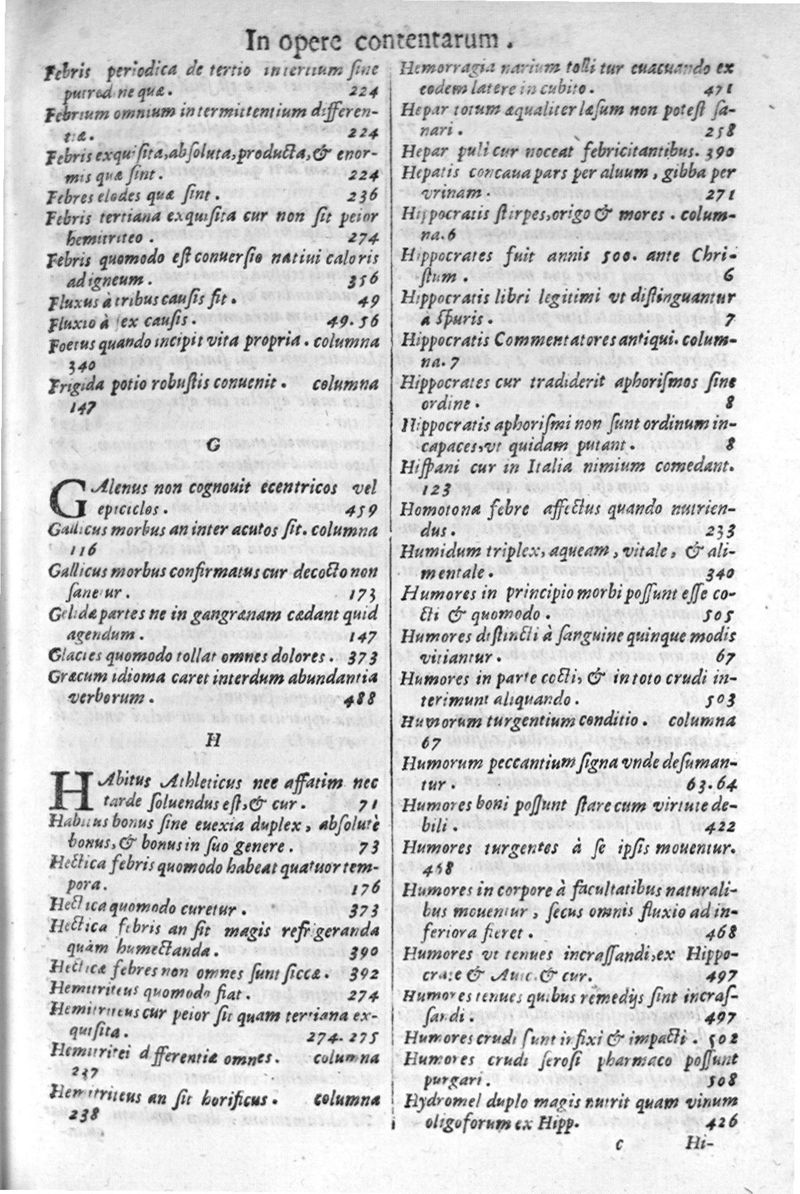 In opere contentarum.
Febris periodica de tertio in tertium sine
putredine quæ. 224
Febrium omnium intermittentium differen-
tiæ. 224
Febris exquisita, absoluta, producta, & enor-
mis quæ sint. 224
Febres elodes quæ sint. 236
Febris tertiana exquisita cur non sit peior
hemitriteo. 274
Febris quomodo est conuersio natiui caloris
ad igneum. 356
Fluxus à tribus causis fit. 49
Fluxio à sex causis. 49.56
Foetus quando incipit vita propria. columna
340
Frigida potio robustis conuenit. columna
147
G
GAlenus non cognouit ecentricos vel
epiciclos. 459
Gallicus morbus an inter acutos sit. columna
116
Gallicus morbus confirmatus cur decocto non
sanetur. 173
Gelidæ partes ne in gangrænam cadant quid
agendum. 147
Glacies quomodo tollat omnes dolores. 373
Græcum idioma caret interdum abundantia
verborum. 488
H
HAbitus Athleticus nec affatim nec
tarde soluendus est, & cur. 71
Habitus bonus sine euexia duplex, absolute
bonus, & bonus in suo genere. 73
Hectica febris quomodo habeat quatuor tem-
pora. 176
Hectica quomodo curetur. 373
Hectica febris an sit magis refrigeranda
quàm humectanda. 390
Hecticæ febres non omnes sunt siccæ. 392
Hemitriteus quomodo fiat. 274
Hemitriteus cur peior sit quam tertiana ex-
quisita. 274.275
Hemitritei differentiæ omnes. columna
237
Hemitriteus an sit horificus. columna
238
Hemorragia narium tollitur euacuando ex
eodem latere in cubito. 471
Hepar totum æqualiter læsum non potest sa-
nari. 258
Hepar puli cur noceat febricitantibus. 390
Hepatis concaua pars per aluum, gibba per
vrinam. 271
Hippocratis stirpes, origo & mores. colum-
na. 6
Hippocrates fuit annis 500. ante Chri-
stum. 6
Hippocratis libri legitimi vt distinguantur
a spuris. 7
Hippocratis Commentatores antiqui. colum-
na. 7
Hippocrates cur tradiderit aphorismos sine
ordine. 8
Hippocratis aphorismi non sunt ordinum in-
capaces, vt quidam putant. 8
Hispani cur in Italia nimium comedant.
123
Homotona febre affectus quando nutrien-
dus. 233
Humidum triplex, aqueam, vitale, & ali-
mentale. 340
Humores in principio morbi possunt esse co-
cti & quomodo. 505
Humores distincti à sanguine quinque modis
vitiantur. 67
Humores in parte cocti, & in toto crudi in-
terimunt aliquando. 503
Humorum turgentium conditio. columna
67
Humorum peccantium signa vnde desuman-
tur. 63.64
Humores boni possunt stare cum virtute de-
bili. 422
Humores turgentes à se ipsis mouentur.
468
Humores in corpore à facultatibus naturali-
bus mouentur, secus omnis fluxio ad in-
feriora fieret. 468
Humores vt tenues incrassandi, ex Hippo-
crate & Auic. & cur. 497
Humores tenues quibus remedijs sint incras-
sandi. 497
Humores crudi sunt infixi & impacti. 502
Humores crudi serosi pharmaco possunt
purgari. 508
Hydromel duplo magis nutrit quam vinum
oligoforum ex Hipp. 426
c Hi-